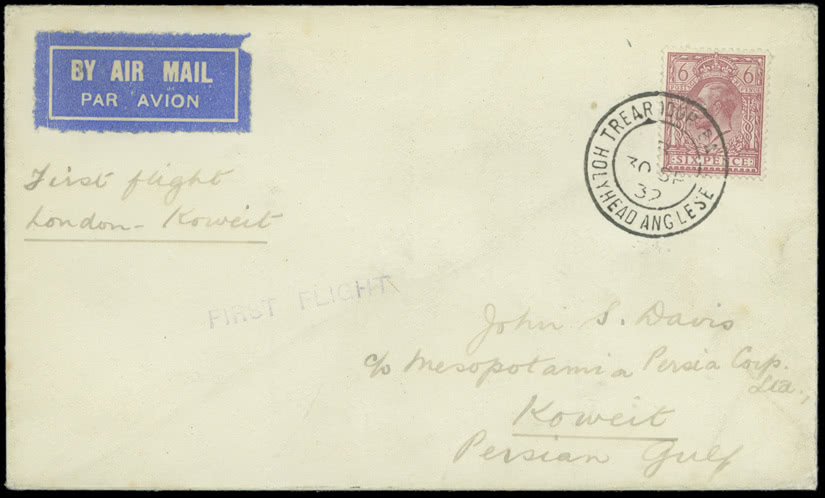 BY AIR MAIL
PAR AVION
First flight
London - Koweit
FIRST FLIGHT
6 6
SIX PENCE
TREARDDUR BAY
HOLYHEAD ANGLESE
30 SP
32
John S. Davis
c/o Mesopotamia Persia Corp.
Ltd.,
Koweit
Persian Gulf